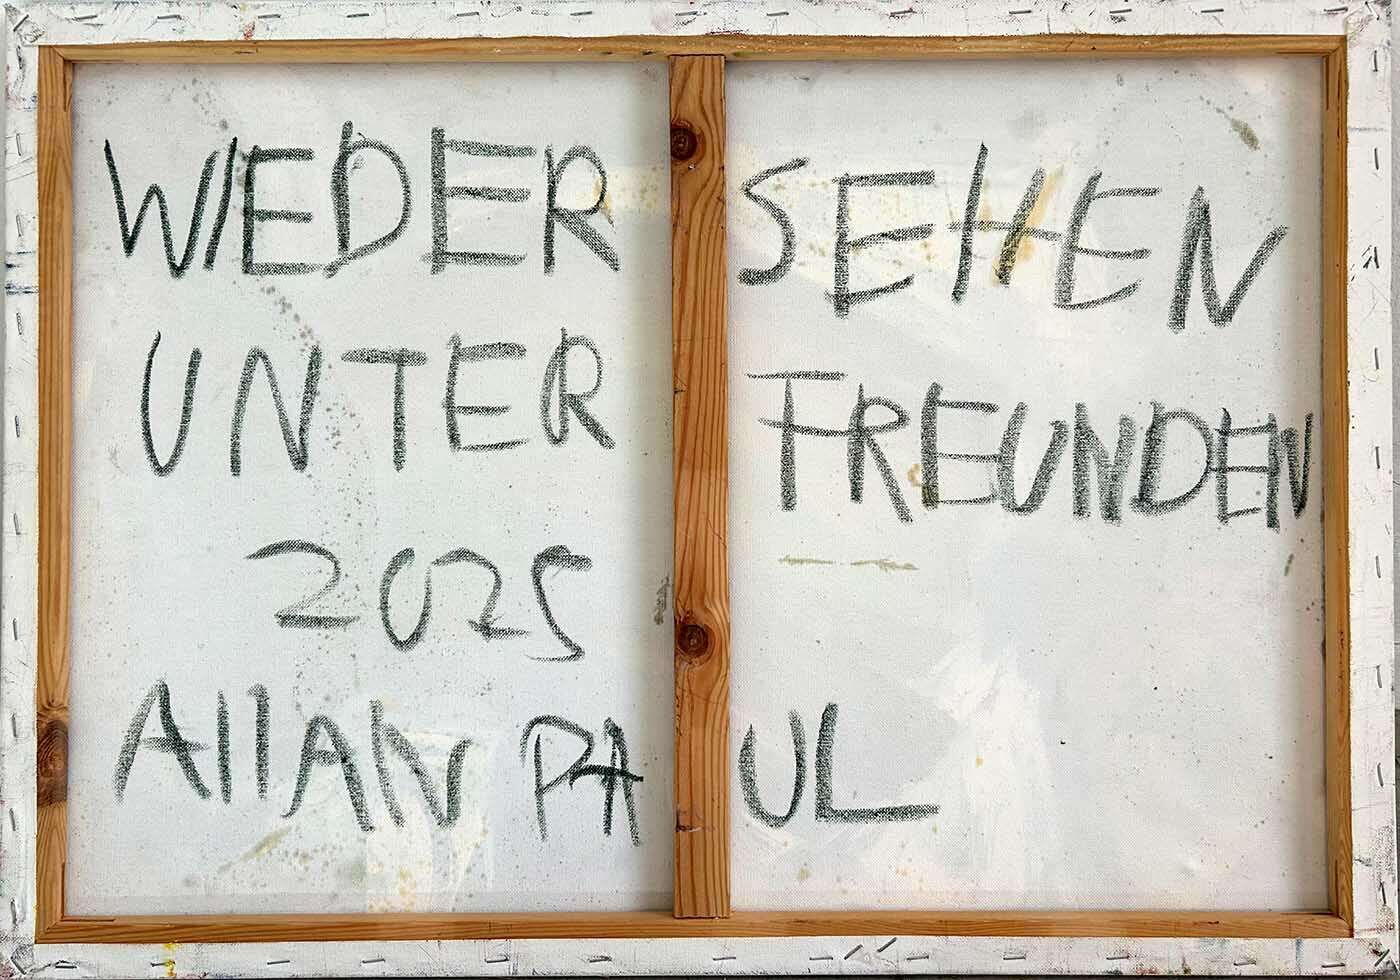 WIEDER SEHEN
UNTER FREUNDEN
2025
AllAN PAUL